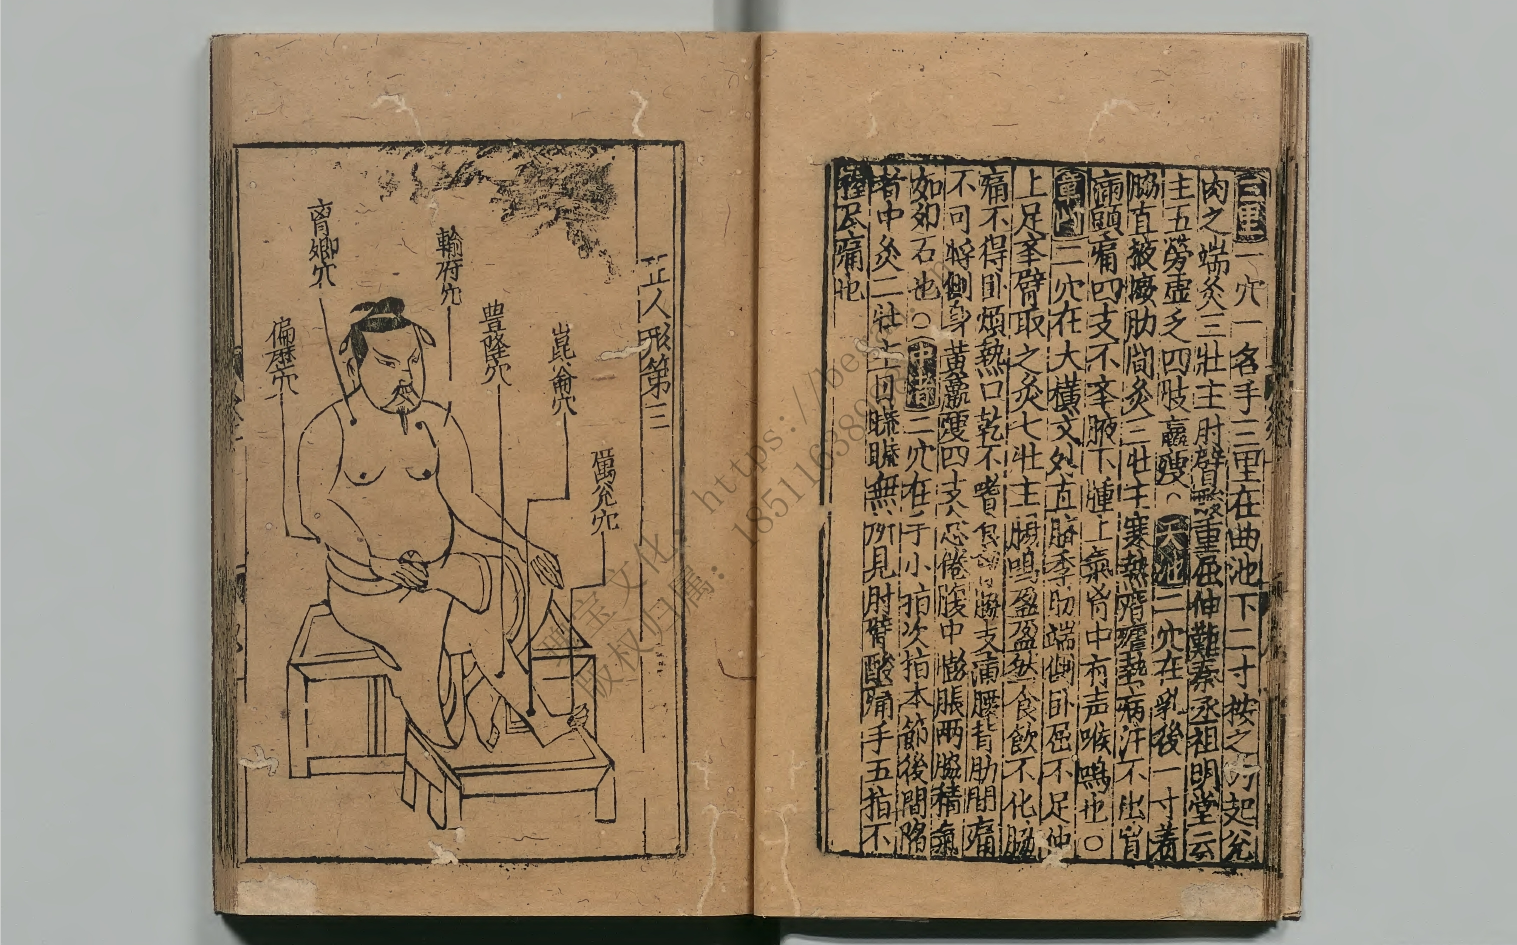 三里一穴一名手三里在曲池下二寸按之肉起兊
肉之端灸三壮主肘臂酸重屈伸難秦丞祖明堂云
主五勞虚乏四肢羸瘦○天池二穴在乳後一寸着
脇直掖撅肋間灸三壮主寒熱痎瘧熱病汗不出胷
滿頭痛四支不挙腋下腫上氣胷中有声喉鳴也○
章門二穴在大橫文外直脐季肋端側卧屈下足伸
上足挙臂取之灸七壮主腸鳴盈盈然食飲不化脇
痛不得卧煩熱口乾不嗜食胷脇支滿腰背肋間痛
不可轉側身黃羸瘦四支怠倦腹中膨脹両脇積氣
如卵石也○中渚二穴在手小指次指本節後間陷
者中灸二壮主目𥇀𥇀無所見肘臂酸痛手五指不
握尽痛也
正人形第三
膏䘏穴
輸府穴
豊隆穴
崑侖穴
偏歴穴
厲兊穴
版权归属：
https://bess
1851163